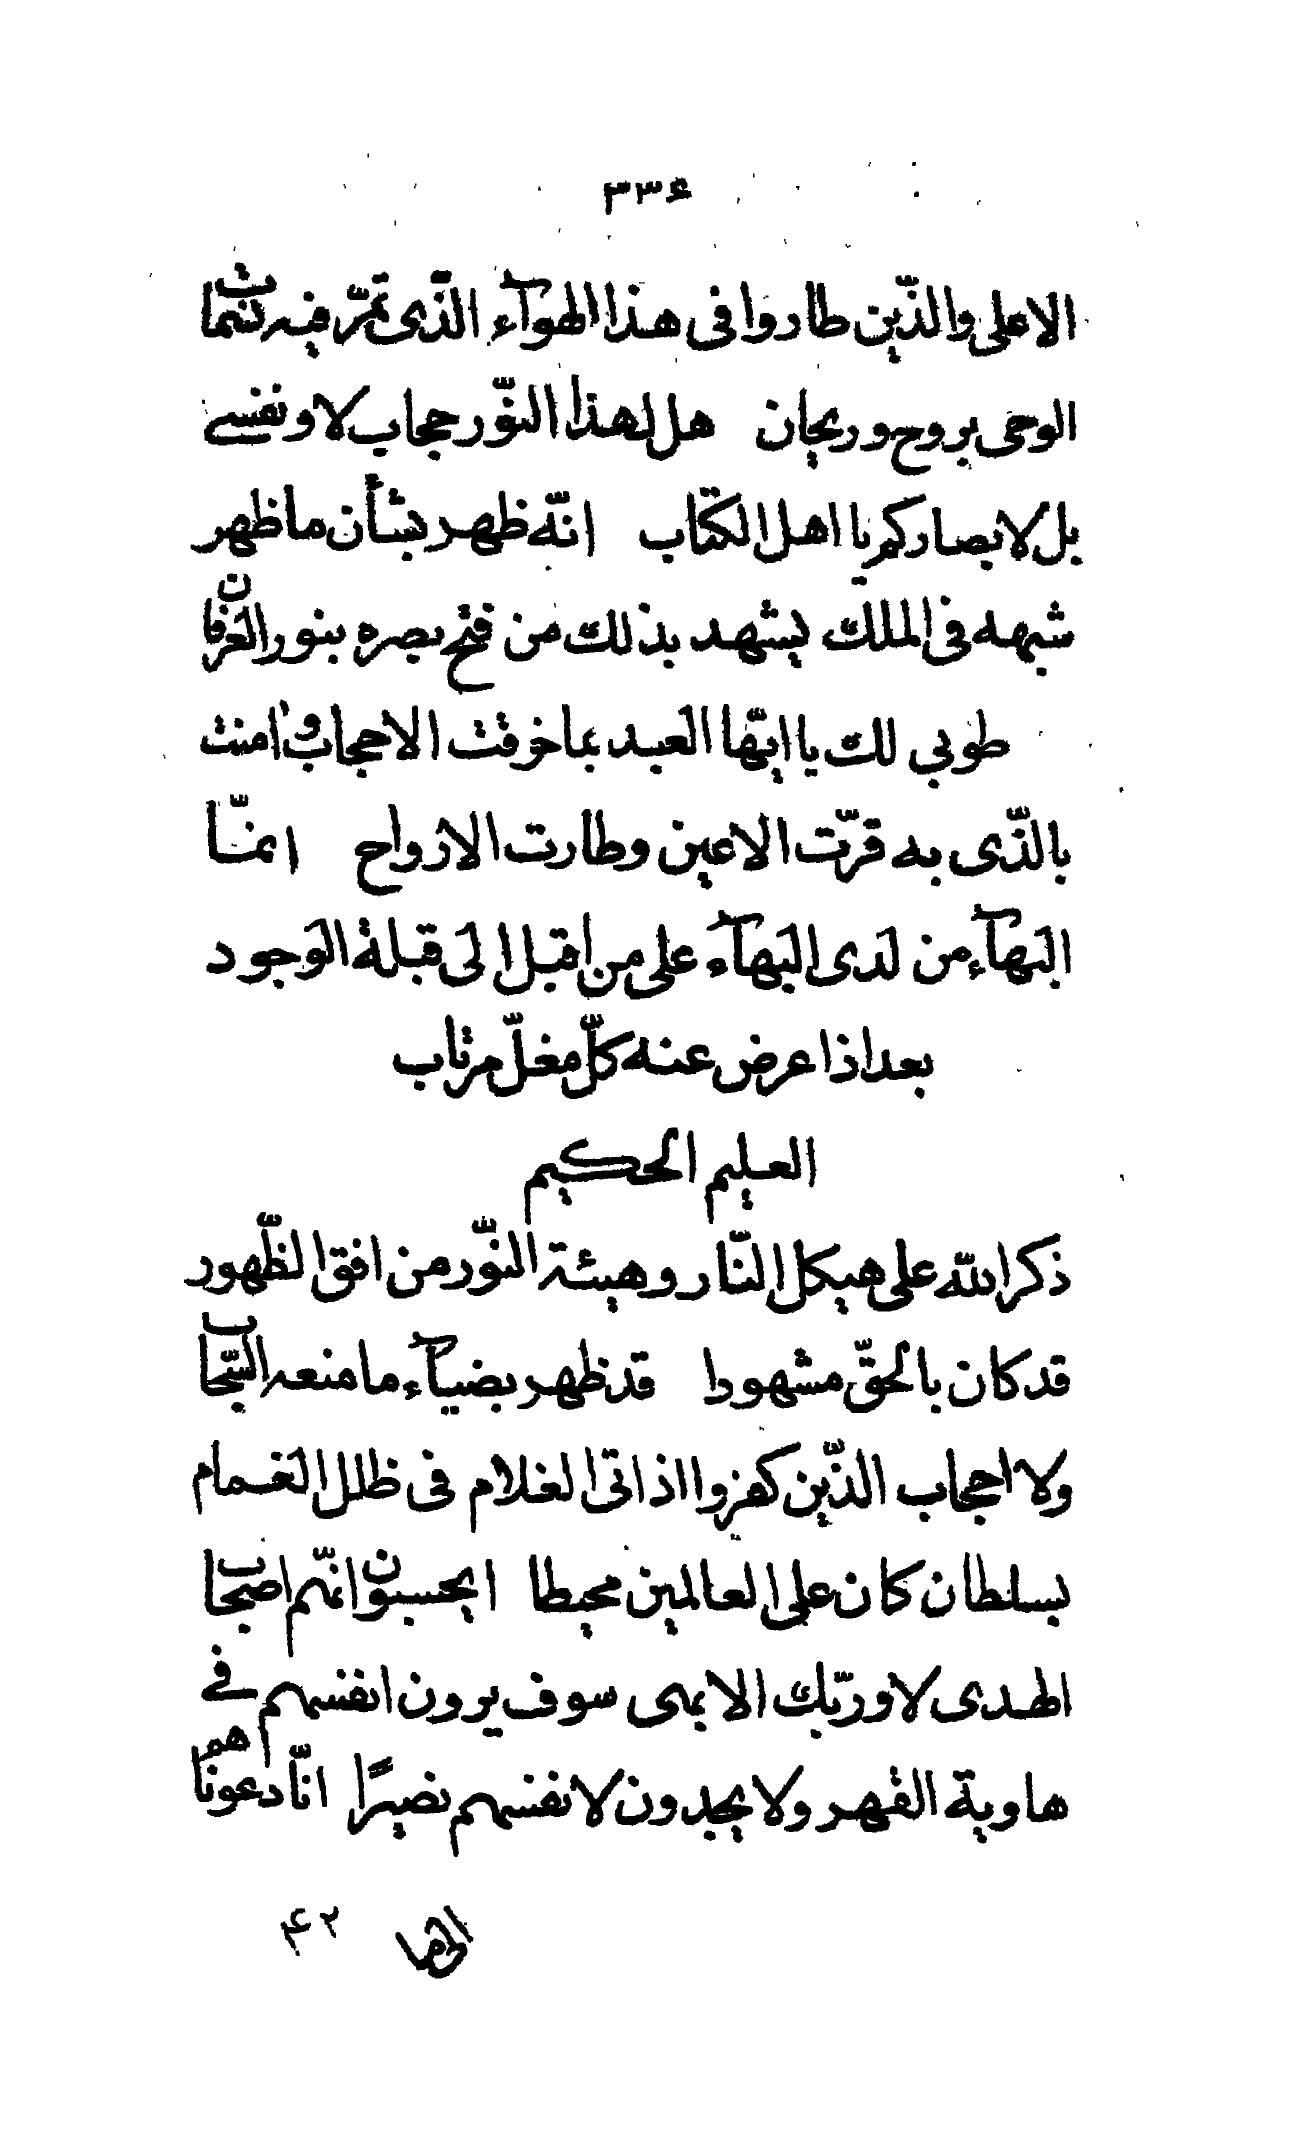 ۳۳۶
الاعلی والّذین طاروا فی هذا الهوآء الّذی تمرّ فیه نسمات
الوحی بروح و ریحان هل لهذا النّور حجاب لا و نفسی
بل لابصارکم یا اهل الکتاب انّه ظهر بشأن ما ظهر
شبهه فی الملک یشهد بذلک من فتح بصره بنور العرفان
طوبی لک یا ایّها العبد بما خرقت الاحجاب و امنت
بالّذی به قرّت الاعین و طارت الارواح انّما
البهآء من لدی البهآء علی من اقبل الی قبلة الوجود
بعد اذ اعرض عنه کلّ مغلّ مرتاب
العلیم الحکیم
ذکر الله علی هیکل النّار و هیئة النّور من افق الظّهور
قد کان بالحقّ مشهودا قد ظهر بضیآء ما منعه السّحاب
ولا احجاب الذّین کفروا اذ اتی الغلام فی ظلل الغمام
بسلطان کان علی العالمین محیطا ایحسبون انّهم اصحاب
الهدی لا و ربّک الابهی سوف یرون انفسهم فی
هاویة القهر ولا یجدون لانفسهم نصیرًا انّا دعوناهم
الی ما
۴۲